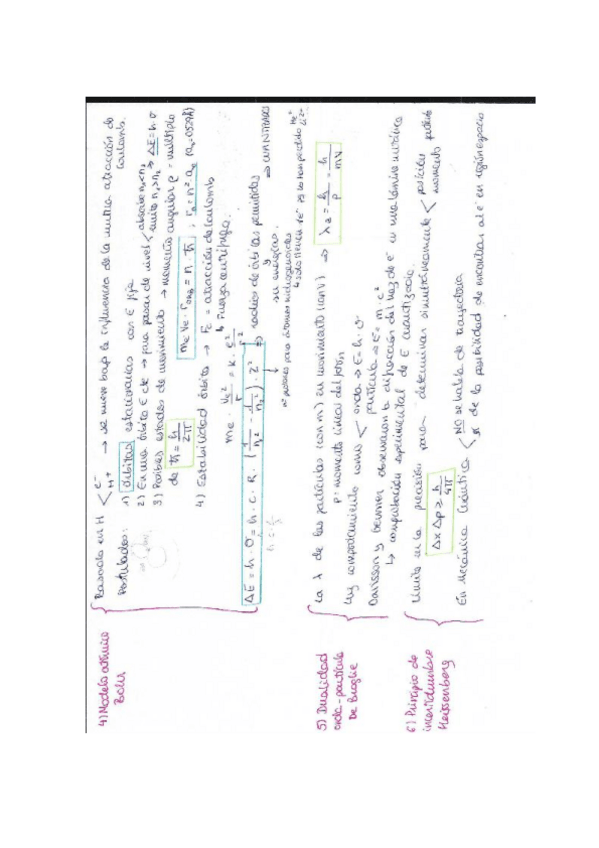 4) Modelo atómico
Bohr
Basado en H < e- H+ → se mueve bajo la influencia de la mutua atracción de
Coulomb.
Postulados:
1) órbitas estacionarias con E fija
2) En una órbita E cte → para pasar de nivel < absorbe n1<n2 emite n1>n2 ⇒ ΔE=h·σ
3) Posibles estados de movimiento → momento angular p = múltiplo
de ħ = h/2π
me·Ve·rorb = n·ħ ; rn = n²·a0 (a0=0.529Å)
4) Estabilidad órbita → Fe = atracción de Coulomb
↳ Fuerza centrífuga.
me·Ve²/r = K·e²/r²
ΔE = h·σ = h·c·R·(1/n1² − 1/n2²)·Z² ⇒ radios de órbitas permitidas
y
su energía
⇒ CUANTIZADAS
nº protones para átomos hidrogenoides
↳ solo tienen 1e- pq lo han perdido He+ Li2+
5) Dualidad
onda-partícula
De Broglie
La λ de las partículas (con m) en movimiento (con v) ⇒ λ = h/p = h/mv
p: momento lineal del fotón
Hay comportamiento como < onda ⇒ E=h·σ
partícula ⇒ E = m·c²
Davisson y Germer observaron la difracción del haz de e- en una lámina metálica
↳ comprobación experimental de E cuantizada.
6) Principio de
incertidumbre
Heisenberg
Límite en la precisión para determinar simultáneamente < posición partícula
momento
Δx Δp ≥ h/4π
En Mecánica Cuántica < NO se habla de trayectoria
de la posibilidad de encontrar al e- en región espacio